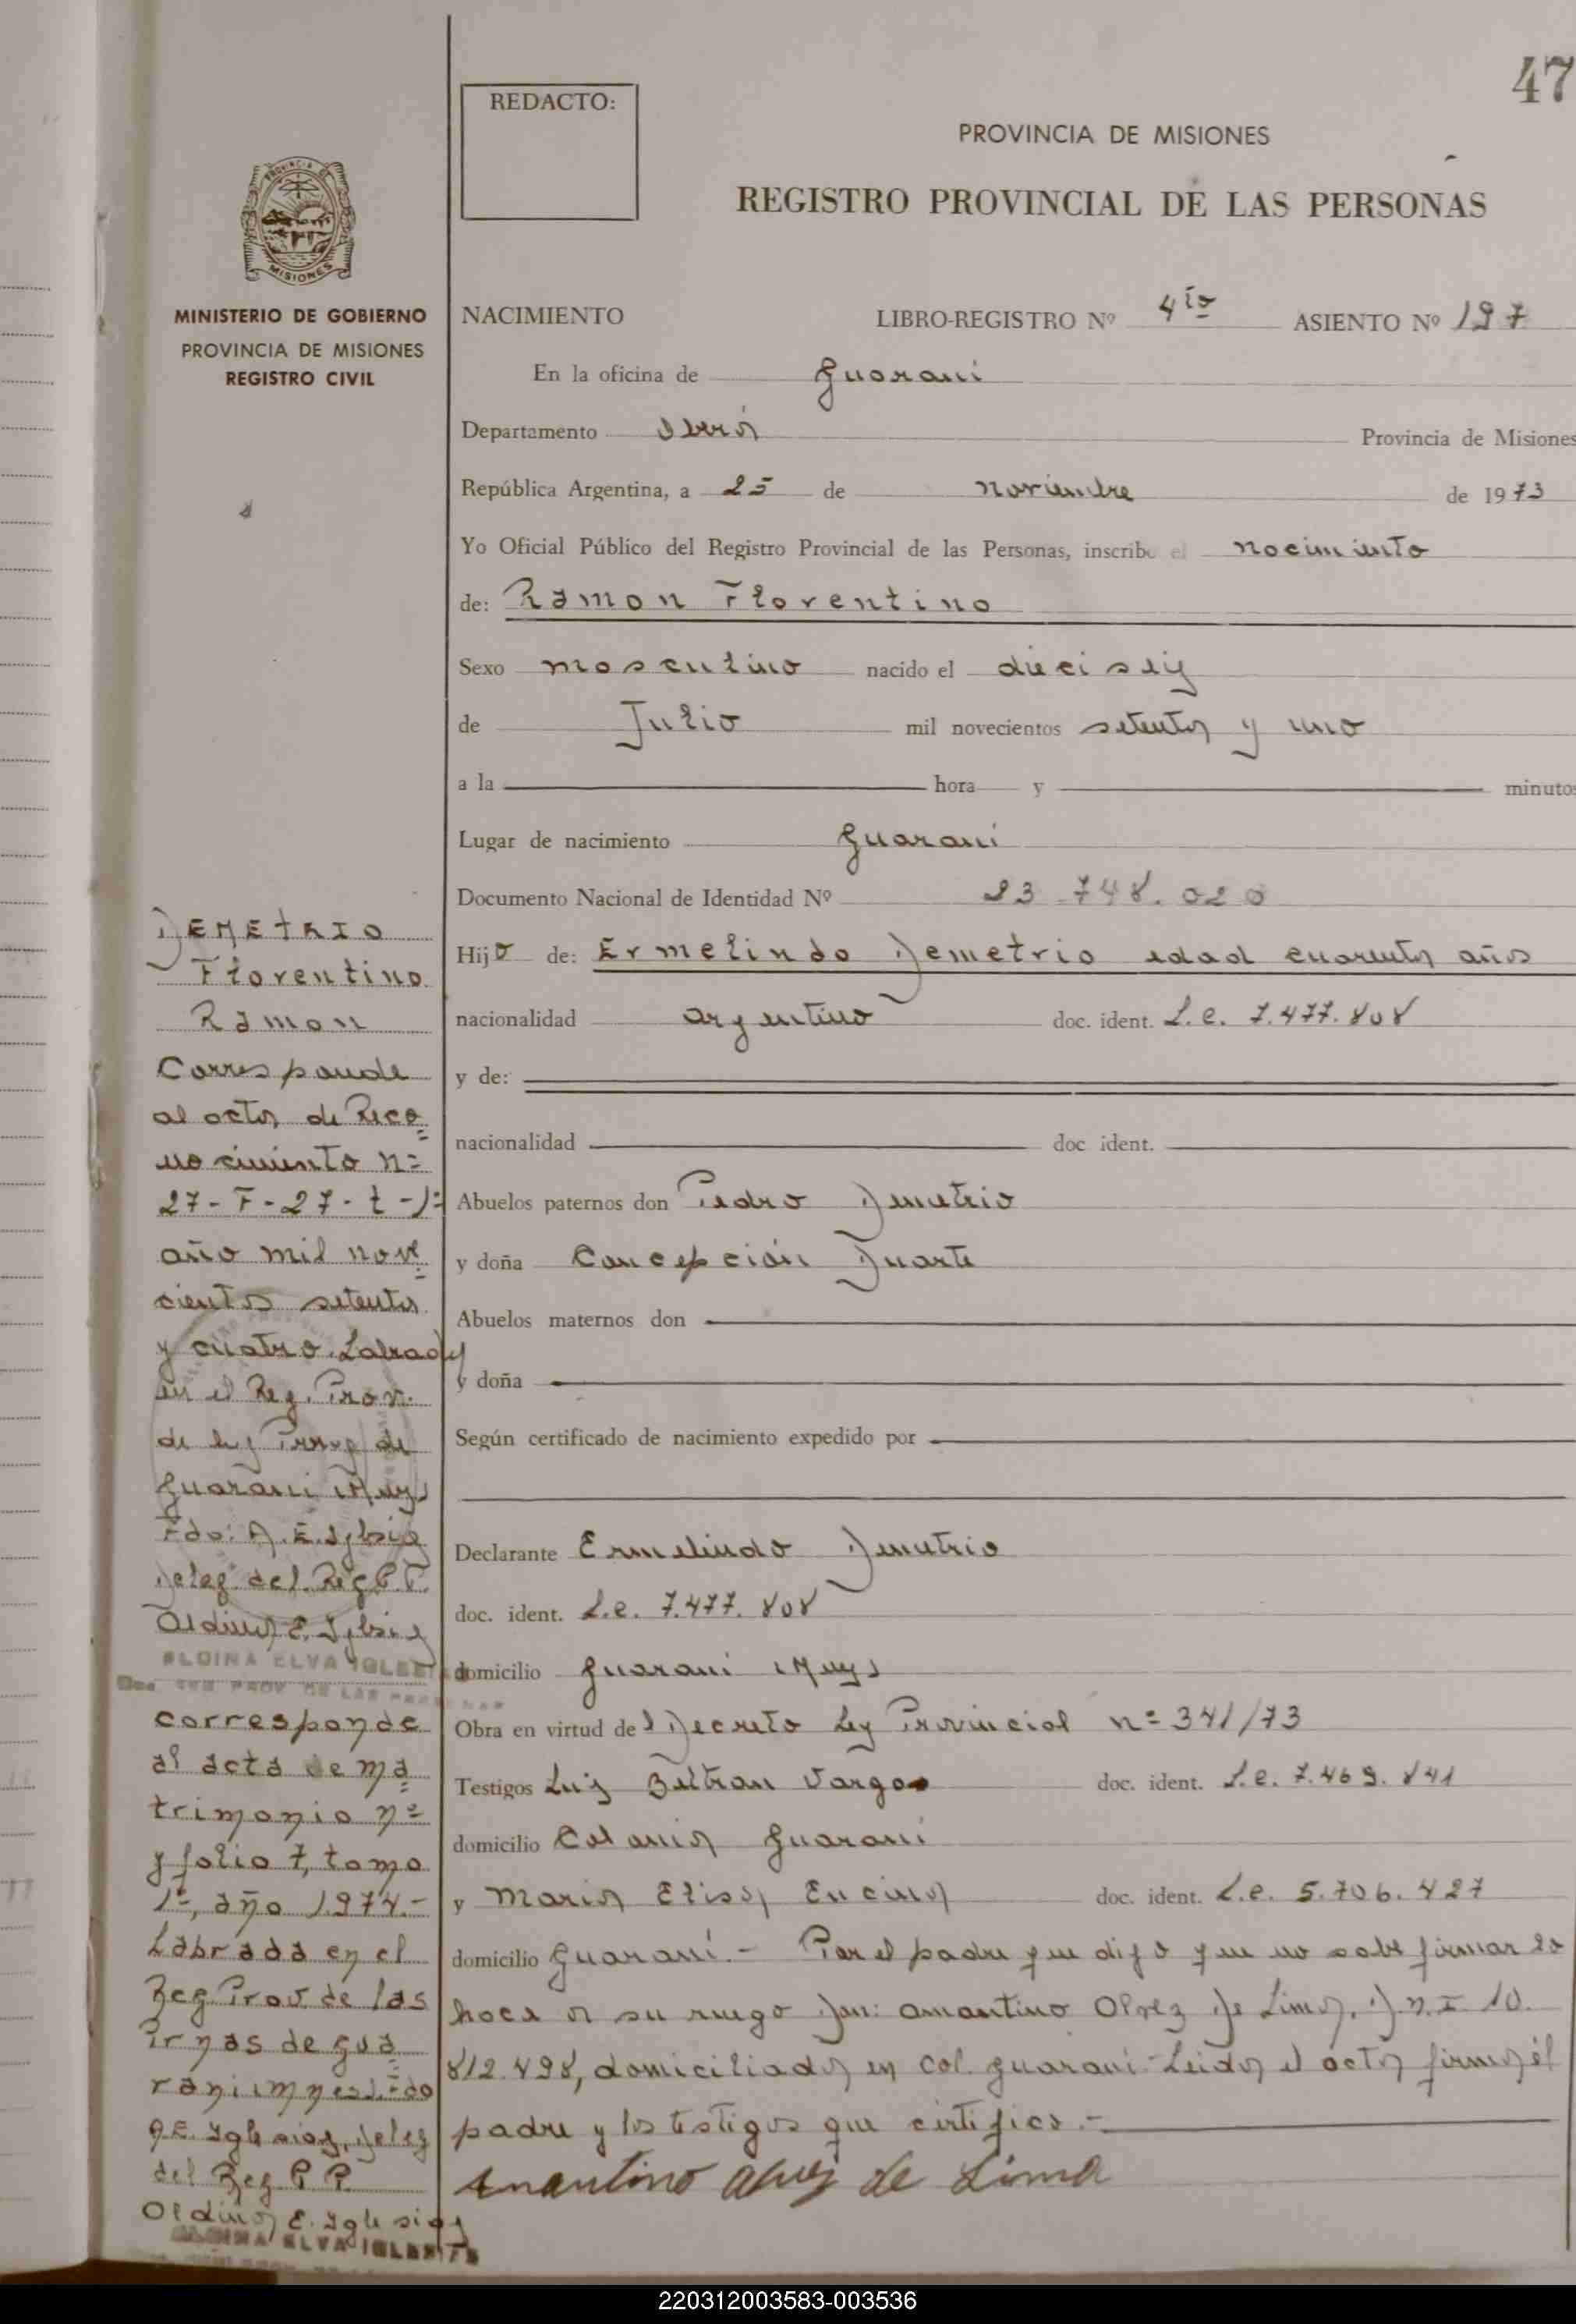 47
REDACTO:
PROVINCIA DE MISIONES
REGISTRO PROVINCIAL DE LAS PERSONAS
PROVINCIA DE
MISIONES
MINISTERIO DE GOBIERNO
PROVINCIA DE MISIONES
REGISTRO CIVIL
NACIMIENTO LIBRO-REGISTRO Nº 4to ASIENTO Nº 197
En la oficina de Guaraní
Departamento Oberá Provincia de Misiones
República Argentina, a 25 de noviembre de 1973
Yo Oficial Público del Registro Provincial de las Personas, inscribo el nacimiento
de: Ramon Florentino
Sexo masculino nacido el dieciseis
de Julio mil novecientos setenta y uno
a la hora y minutos
Lugar de nacimiento Guaraní
Documento Nacional de Identidad Nº 23.748.020
Hijo de: Ermelindo Demetrio edad cuarenta años
nacionalidad argentino doc. ident. L.e. 7.477.808
y de:
nacionalidad doc ident.
Abuelos paternos don Pedro Demetrio
y doña Concepción Duarte
Abuelos maternos don
y doña
Según certificado de nacimiento expedido por
Declarante Ermelindo Demetrio
doc. ident. L.e. 7.477.808
domicilio Guaraní Mnes
Obra en virtud del Decreto Ley Provincial nº 341/73
Testigos Luis Beltran Vargas doc. ident. L.e. 7.469.841
domicilio Colonia Guaraní
y Maria Elisa Encina doc. ident. L.e. 5.706.427
domicilio Guaraní.- Por el padre que dijo que no sabe firmar lo
hace a su ruego Don: Amantino Alvez De Lima, D.N.I 10.
812.498, domiciliado en Col. Guaraní-Leida el acta firma él
padre y los testigos que certifico.-
Amantino Alvez de Lima
DEMETRIO
Florentino
Ramon
Corresponde
al acta de Reco=
nocimiento n=
27-F-27-t-1º
año mil nove=
cientos setenta
y cuatro. Labrada
en el Reg. Prov.
de las Pernas de
Guaraní Mnes
Fdo: A.E. Iglesias
Deleg del Reg P.P.
Aldina E. Iglesias
ALDINA ELVA IGLESIAS
REG PROV DE LAS PERSONAS
corresponde
al acta de ma=
trimonio nº
y folio 7, tomo
1º, año 1974.-
Labrada en el
Reg. Prov de las
Prnas de gua=
rani mnes. Fdo
A.E. Iglesias, Deleg
del Reg P P.
Aldina E. Iglesias
ALDINA ELVA IGLESIAS
220312003583-003536